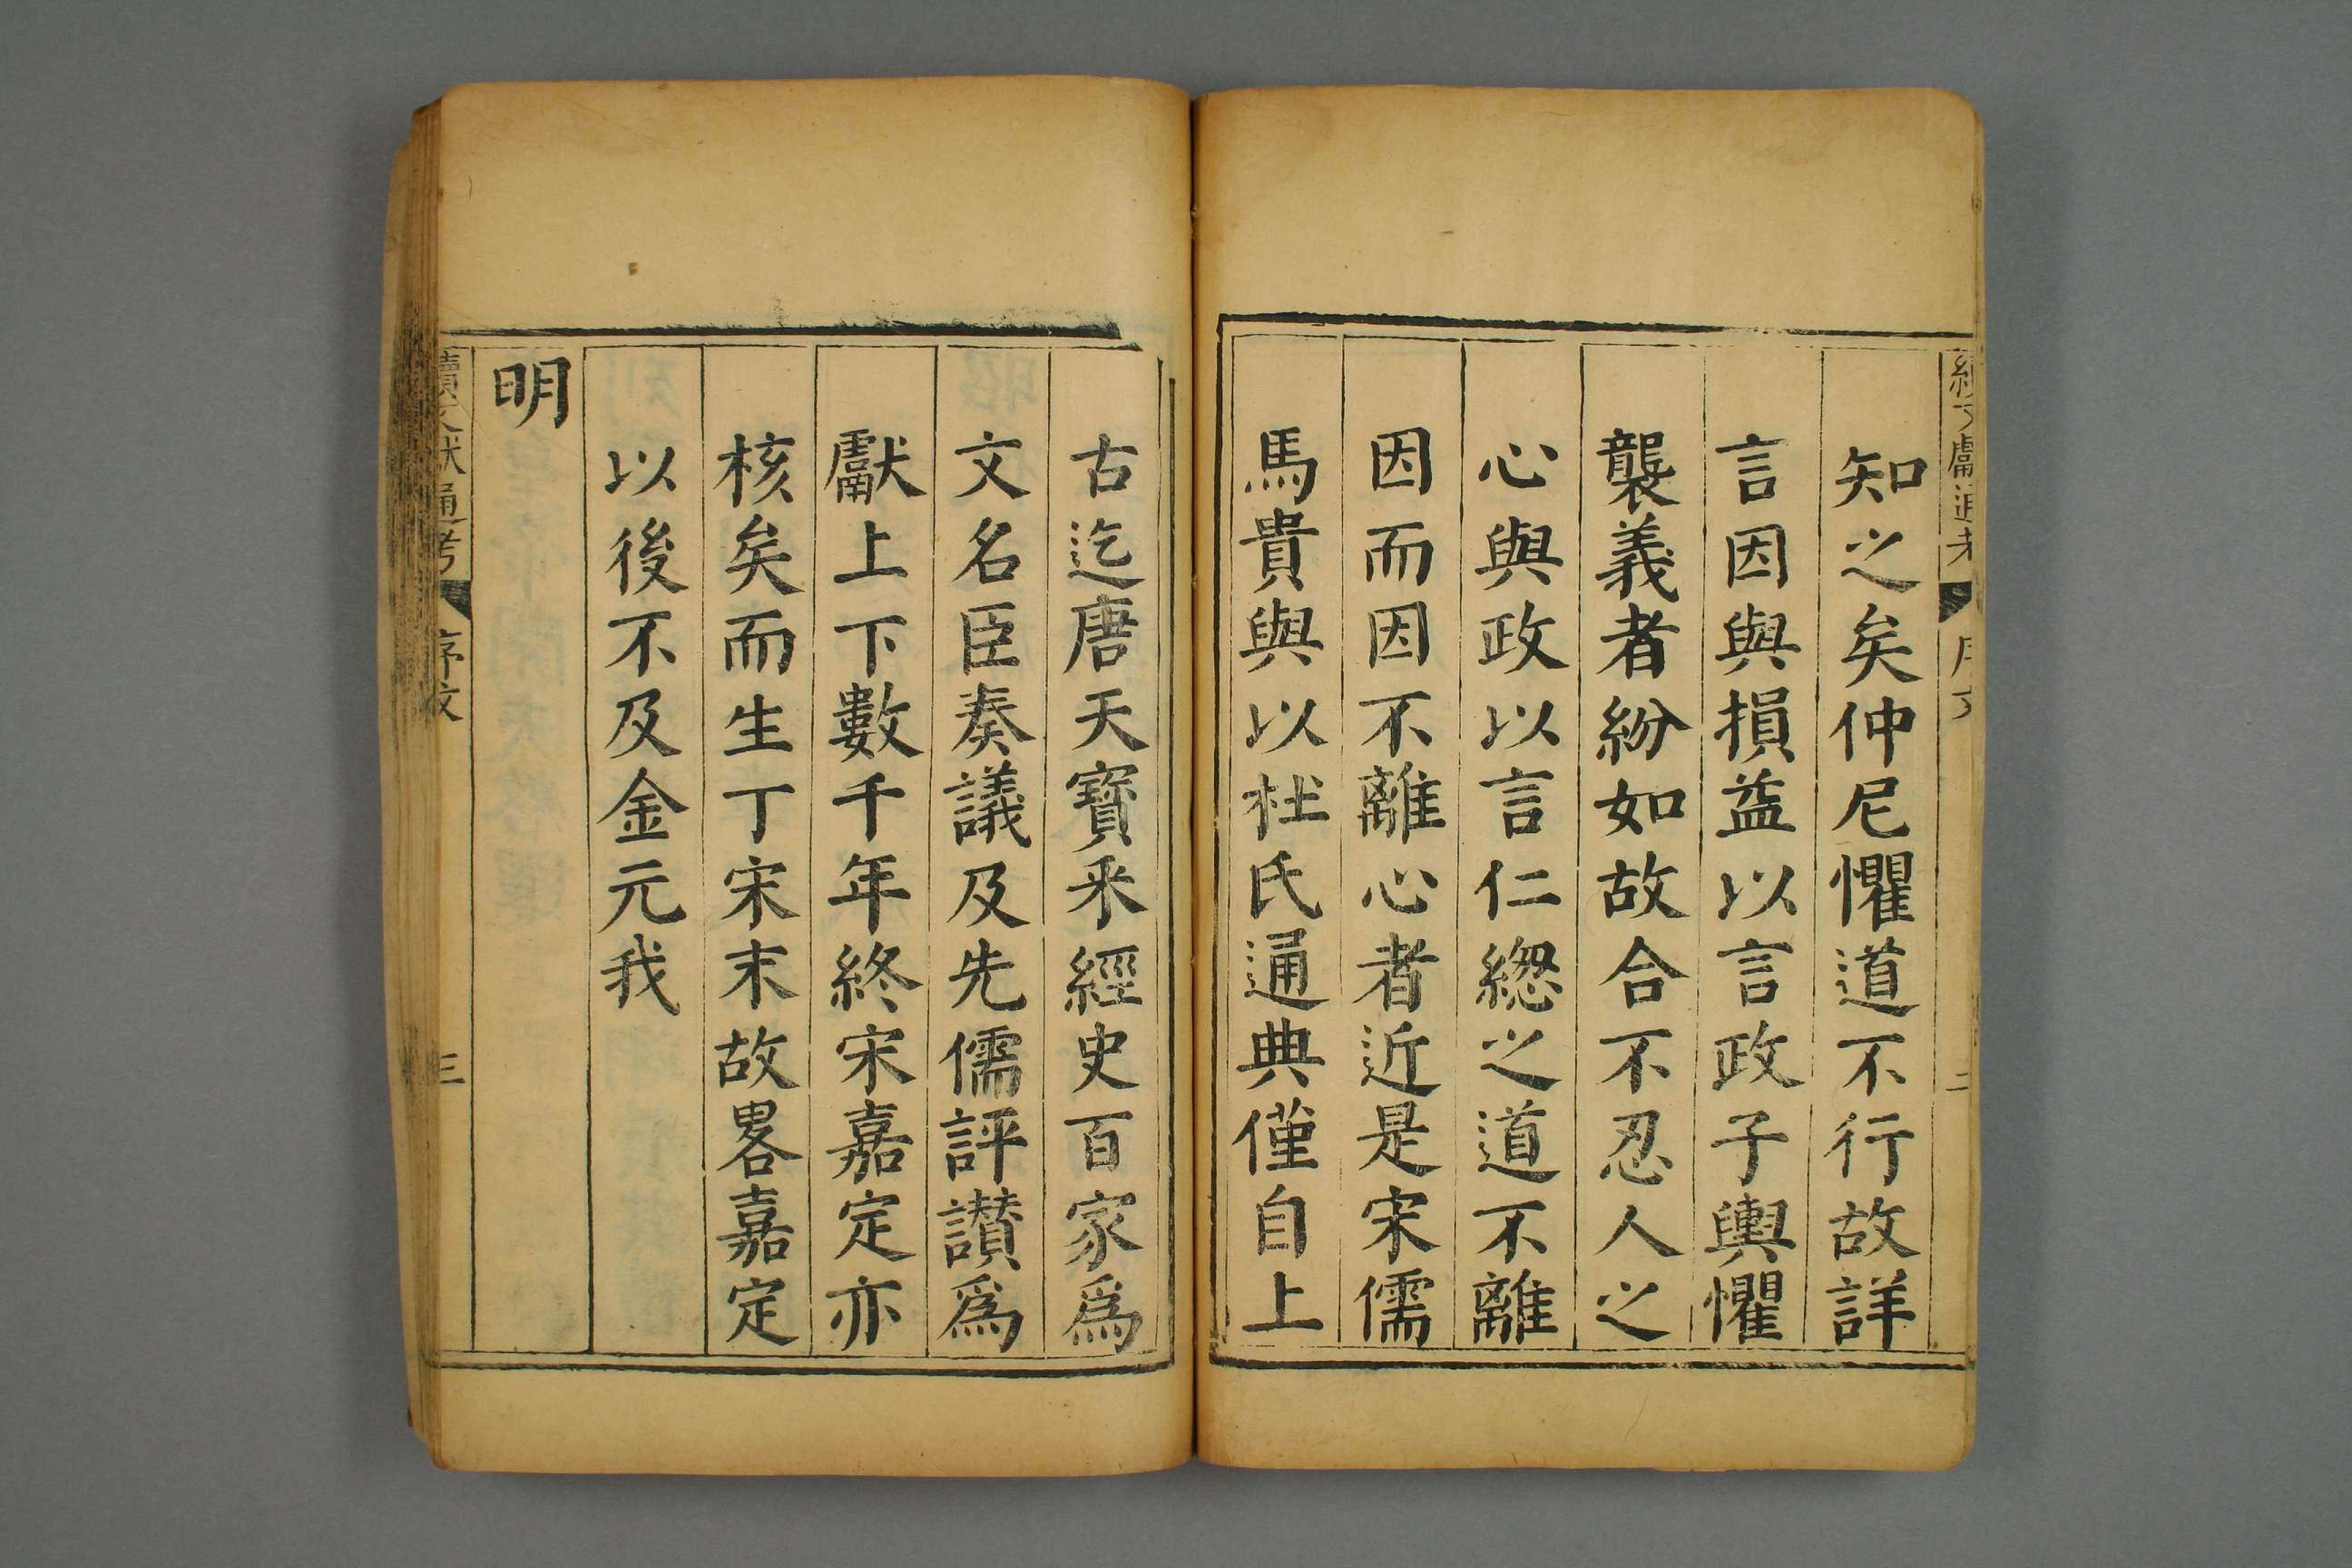 知之矣仲尼懼道不行故詳
言因與損益以言政子輿懼
襲義者紛如故合不忍人之
心與政以言仁緫之道不離
因而因不離心者近是宋儒
馬貴與以杜氏通典僅自上
古迄唐天寶釆經史百家爲
文名臣奏議及先儒評讃爲
獻上下數千年終宋嘉定亦
核矣而生丁宋末故畧嘉定
以後不及金元我
明
續文獻通考
序文
三